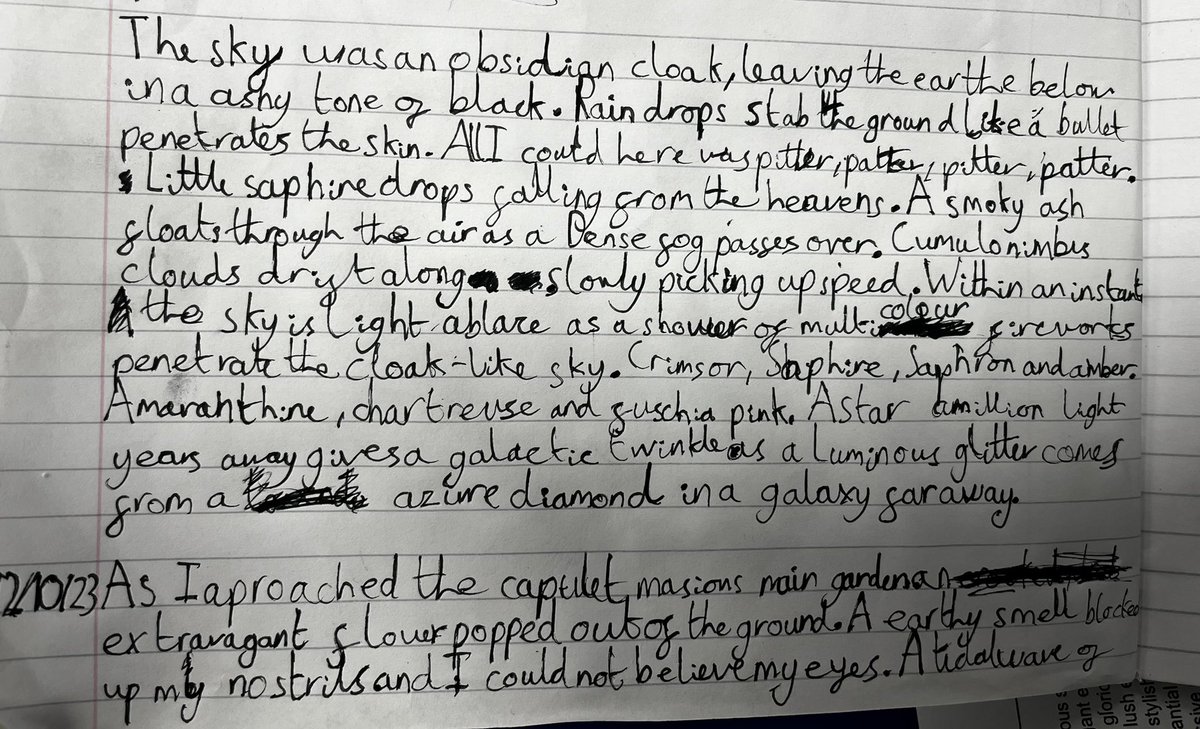 The sky was an obsidian cloak, leaving the earthe below
in a ashy tone of black. Rain drops stab the ground like a bullet
penetrates the skin. All I could here was pitter, patter, pitter, patter.
Little saphire drops falling from the heavens. A smoky ash
floats through the air as a Dense fog passes over. Cumulonimbus
clouds drift along slowly picking up speed. Within an instant
the sky is light ablaze as a shower of multi colour fireworks
penetrate the cloak-like sky. Crimson, Saphire, Saphron and amber.
Amaranhthine, chartreuse and fuschia pink. A star a million light
years away gives a galactic twinkle as a luminous glitter comes
from a azure diamond in a galaxy far away.
2/10/23 As I aproached the capulet masions main garden an
extravagant flower popped out of the ground. A earthy smell blocked
up my nostrils and I could not believe my eyes. A tidal wave of
ous s
ant e
gloric
lush
stylis
antial
sive